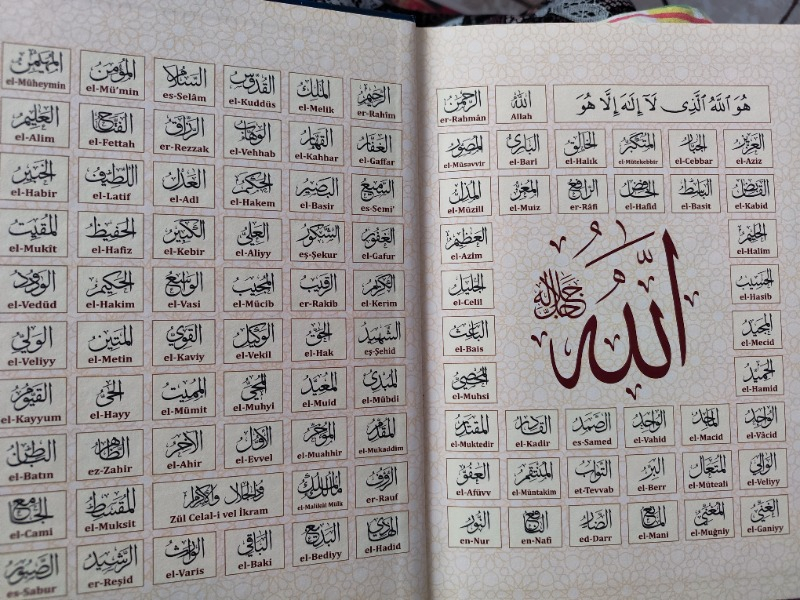 هُوَ اللهُ الَّذِى لَا إِلَهَ إِلَّا هُوَ
الله
Allah
الرحمن
er-Rahmân
الرحيم
er-Rahîm
الملك
el-Melik
القدوس
el-Kuddüs
السلام
es-Selâm
المؤمن
el-Mü'min
المهيمن
el-Müheymin
العزيز
el-Aziz
الجبار
el-Cebbar
المتكبر
el-Mütekebbir
الخالق
el-Halık
البارئ
el-Bari
المصور
el-Müsavvir
الغفار
el-Gaffar
القهار
el-Kahhar
الوهاب
el-Vehhab
الرزاق
er-Rezzak
الفتاح
el-Fettah
العليم
el-Alim
القابض
el-Kabid
الباسط
el-Basit
الخافض
el-Hafid
الرافع
er-Râfi
المعز
el-Muiz
المذل
el-Müzill
السميع
es-Semi'
البصير
el-Basir
الحكم
el-Hakem
العدل
el-Adl
اللطيف
el-Latif
الخبير
el-Habir
الحليم
el-Halim
العظيم
el-Azim
الغفور
el-Gafur
الشكور
eş-Şekur
العلي
el-Aliyy
الكبير
el-Kebir
الحفيظ
el-Hafiz
المقيت
el-Mukît
الحسيب
el-Hasib
الجليل
el-Celil
الكريم
el-Kerim
الرقيب
er-Rakib
المجيب
el-Mücib
الواسع
el-Vasi
الحكيم
el-Hakim
الودود
el-Vedüd
الله
جل جلاله
المجيد
el-Mecid
الباعث
el-Bais
الشهيد
eş-Şehid
الحق
el-Hak
الوكيل
el-Vekil
القوي
el-Kaviy
المتين
el-Metin
الولي
el-Veliyy
الحميد
el-Hamid
المحصي
el-Muhsi
المبدئ
el-Mübdi
المعيد
el-Muid
المحيي
el-Muhyi
المميت
el-Mümit
الحي
el-Hayy
القيوم
el-Kayyum
الواجد
el-Vâcid
الماجد
el-Macid
الواحد
el-Vahid
الصمد
es-Samed
القادر
el-Kadir
المقتدر
el-Muktedir
المقدم
el-Mukaddim
المؤخر
el-Muahhir
الأول
el-Evvel
الآخر
el-Ahir
الظاهر
ez-Zahir
الباطن
el-Batın
الوالي
el-Veliyy
المتعال
el-Müteali
البر
el-Berr
التواب
et-Tevvab
المنتقم
el-Müntakim
العفو
el-Afüvv
الرؤف
er-Rauf
مالك الملك
el-Malikül Mülk
ذو الجلال والإكرام
Zül Celal-i vel İkram
المقسط
el-Muksit
الجامع
el-Cami
الغني
el-Ganiyy
المغني
el-Muğniy
المانع
el-Mani
الضار
ed-Darr
النافع
en-Nafi
النور
en-Nur
الهادي
el-Hadid
البديع
el-Bediyy
الباقي
el-Baki
الوارث
el-Varis
الرشيد
er-Reşid
الصبور
es-Sabur